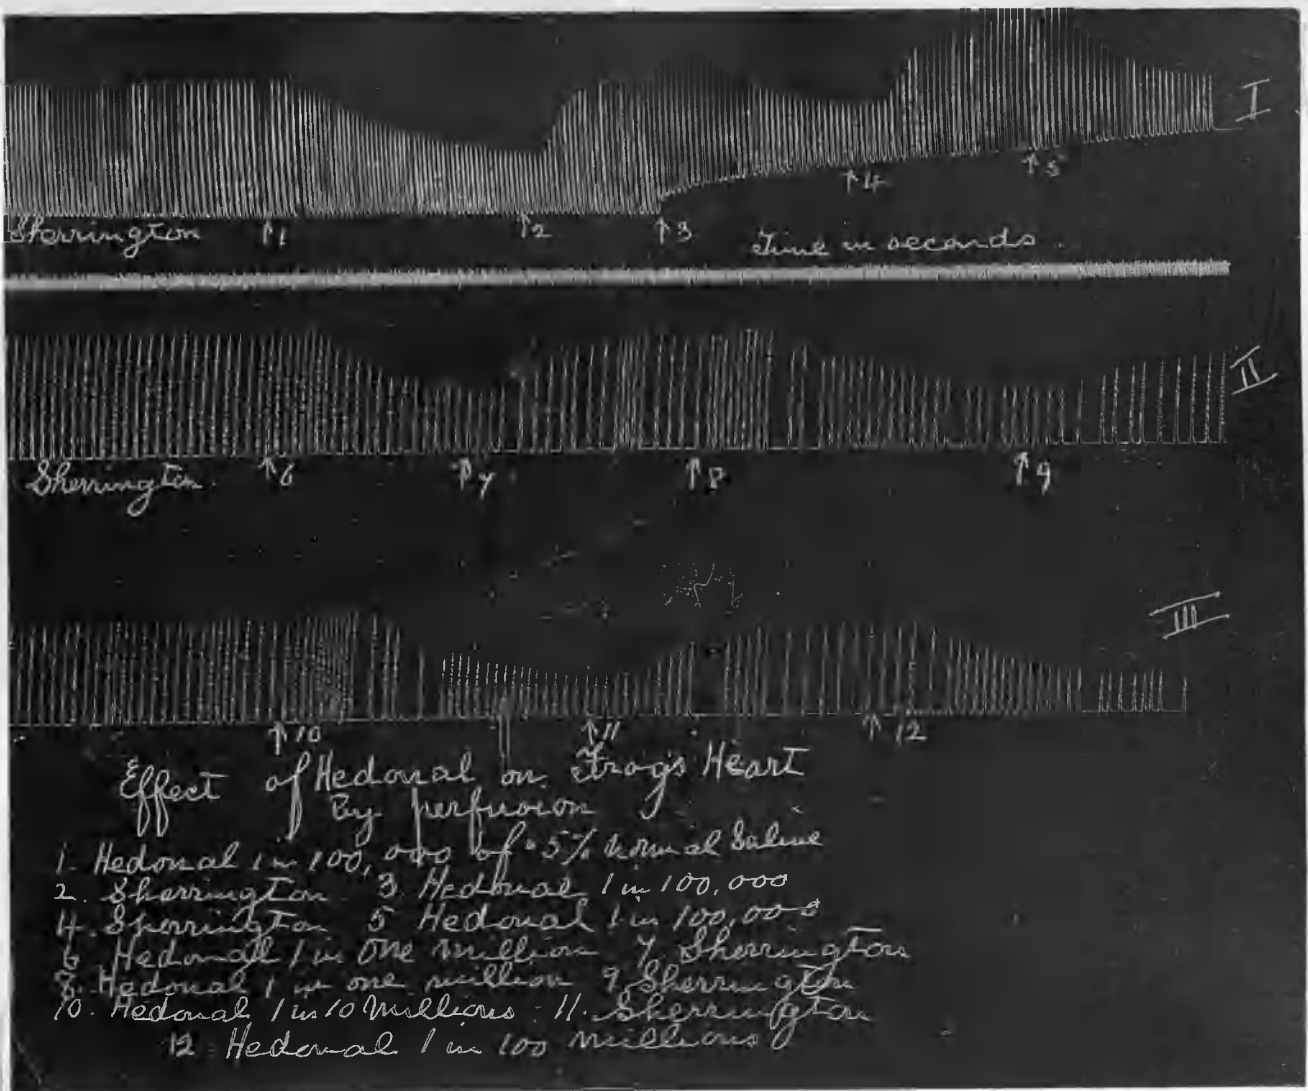 I
Sherrington ↑1 ↑2 ↑3 ↑4 ↑5
Time in seconds.
II
Sherrington. ↑6 ↑7 ↑8 ↑9
III
↑10 ↑11 ↑12
Effect of Hedonal on Frogs Heart
By perfusion
1. Hedonal 1 in 100,000 of .5% normal Saline
2. Sherrington 3 Hedonal 1 in 100,000
4. Sherrington 5 Hedonal 1 in 100,000
6 Hedonal 1 in One million 7. Sherrington
8. Hedonal 1 in one million 9 Sherrington
10. Hedonal 1 in 10 Millions - 11. Sherrington
12 Hedonal 1 in 100 millions